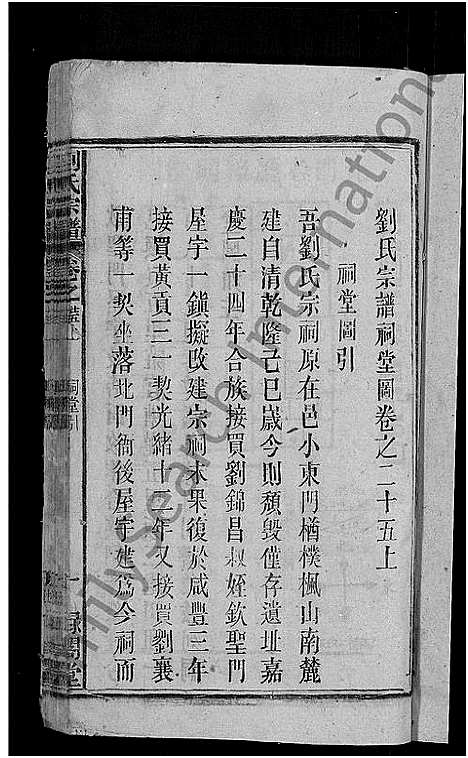 劉氏宗譜祠堂圖卷之二十五上
祠堂圖引
吾劉氏宗祠原在邑小東門楢樸楓山南麓
建自清乾隆己巳歲今則頹毀僅存遺址嘉
慶二十四年合族接買劉錦昌叔姪欽聖門
屋宇一鎭擬改建宗祠未果復於咸豐三年
接買黃貢三一契光緒十二年又接買劉襄
甫等一契坐落北門衙後屋宇建爲今祠而
劉氏宗譜
卷之
祠堂引
Family Search International